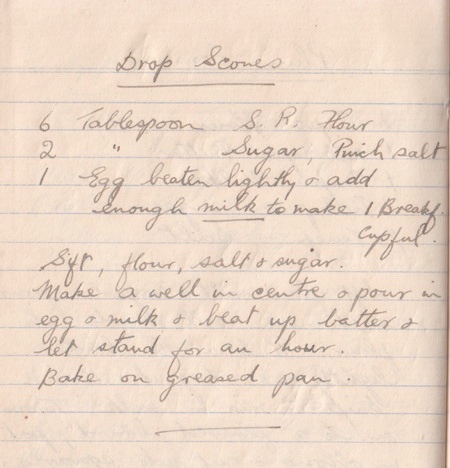 Drop Scones
6 Tablespoon S. R. Flour
2 " Sugar, Pinch salt
1 Egg beaten lightly & add
enough milk to make 1 Breakf.
Cupful.
Sift, flour, salt & sugar.
Make a well in centre & pour in
egg & milk & beat up batter &
let stand for an hour.
Bake on greased pan.